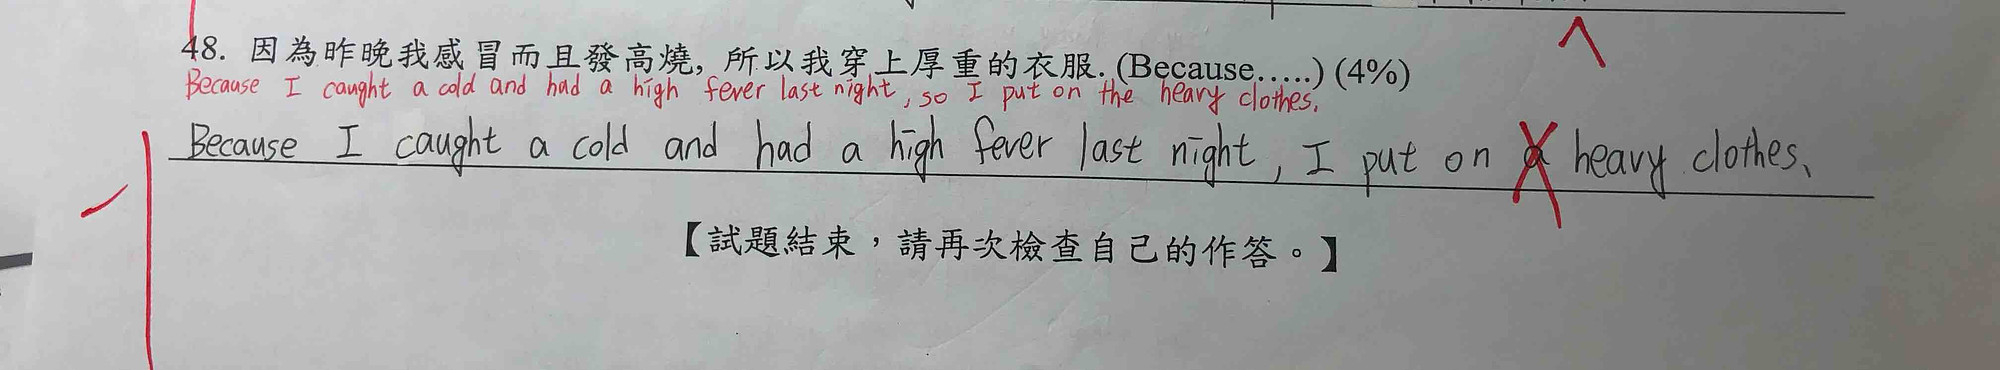 48. 因為昨晚我感冒而且發高燒, 所以我穿上厚重的衣服. (Because.....) (4%)
Because I caught a cold and had a high fever last night, so I put on the heavy clothes.
Because I caught a cold and had a high fever last night, I put on a heavy clothes.
-1
【試題結束，請再次檢查自己的作答。】